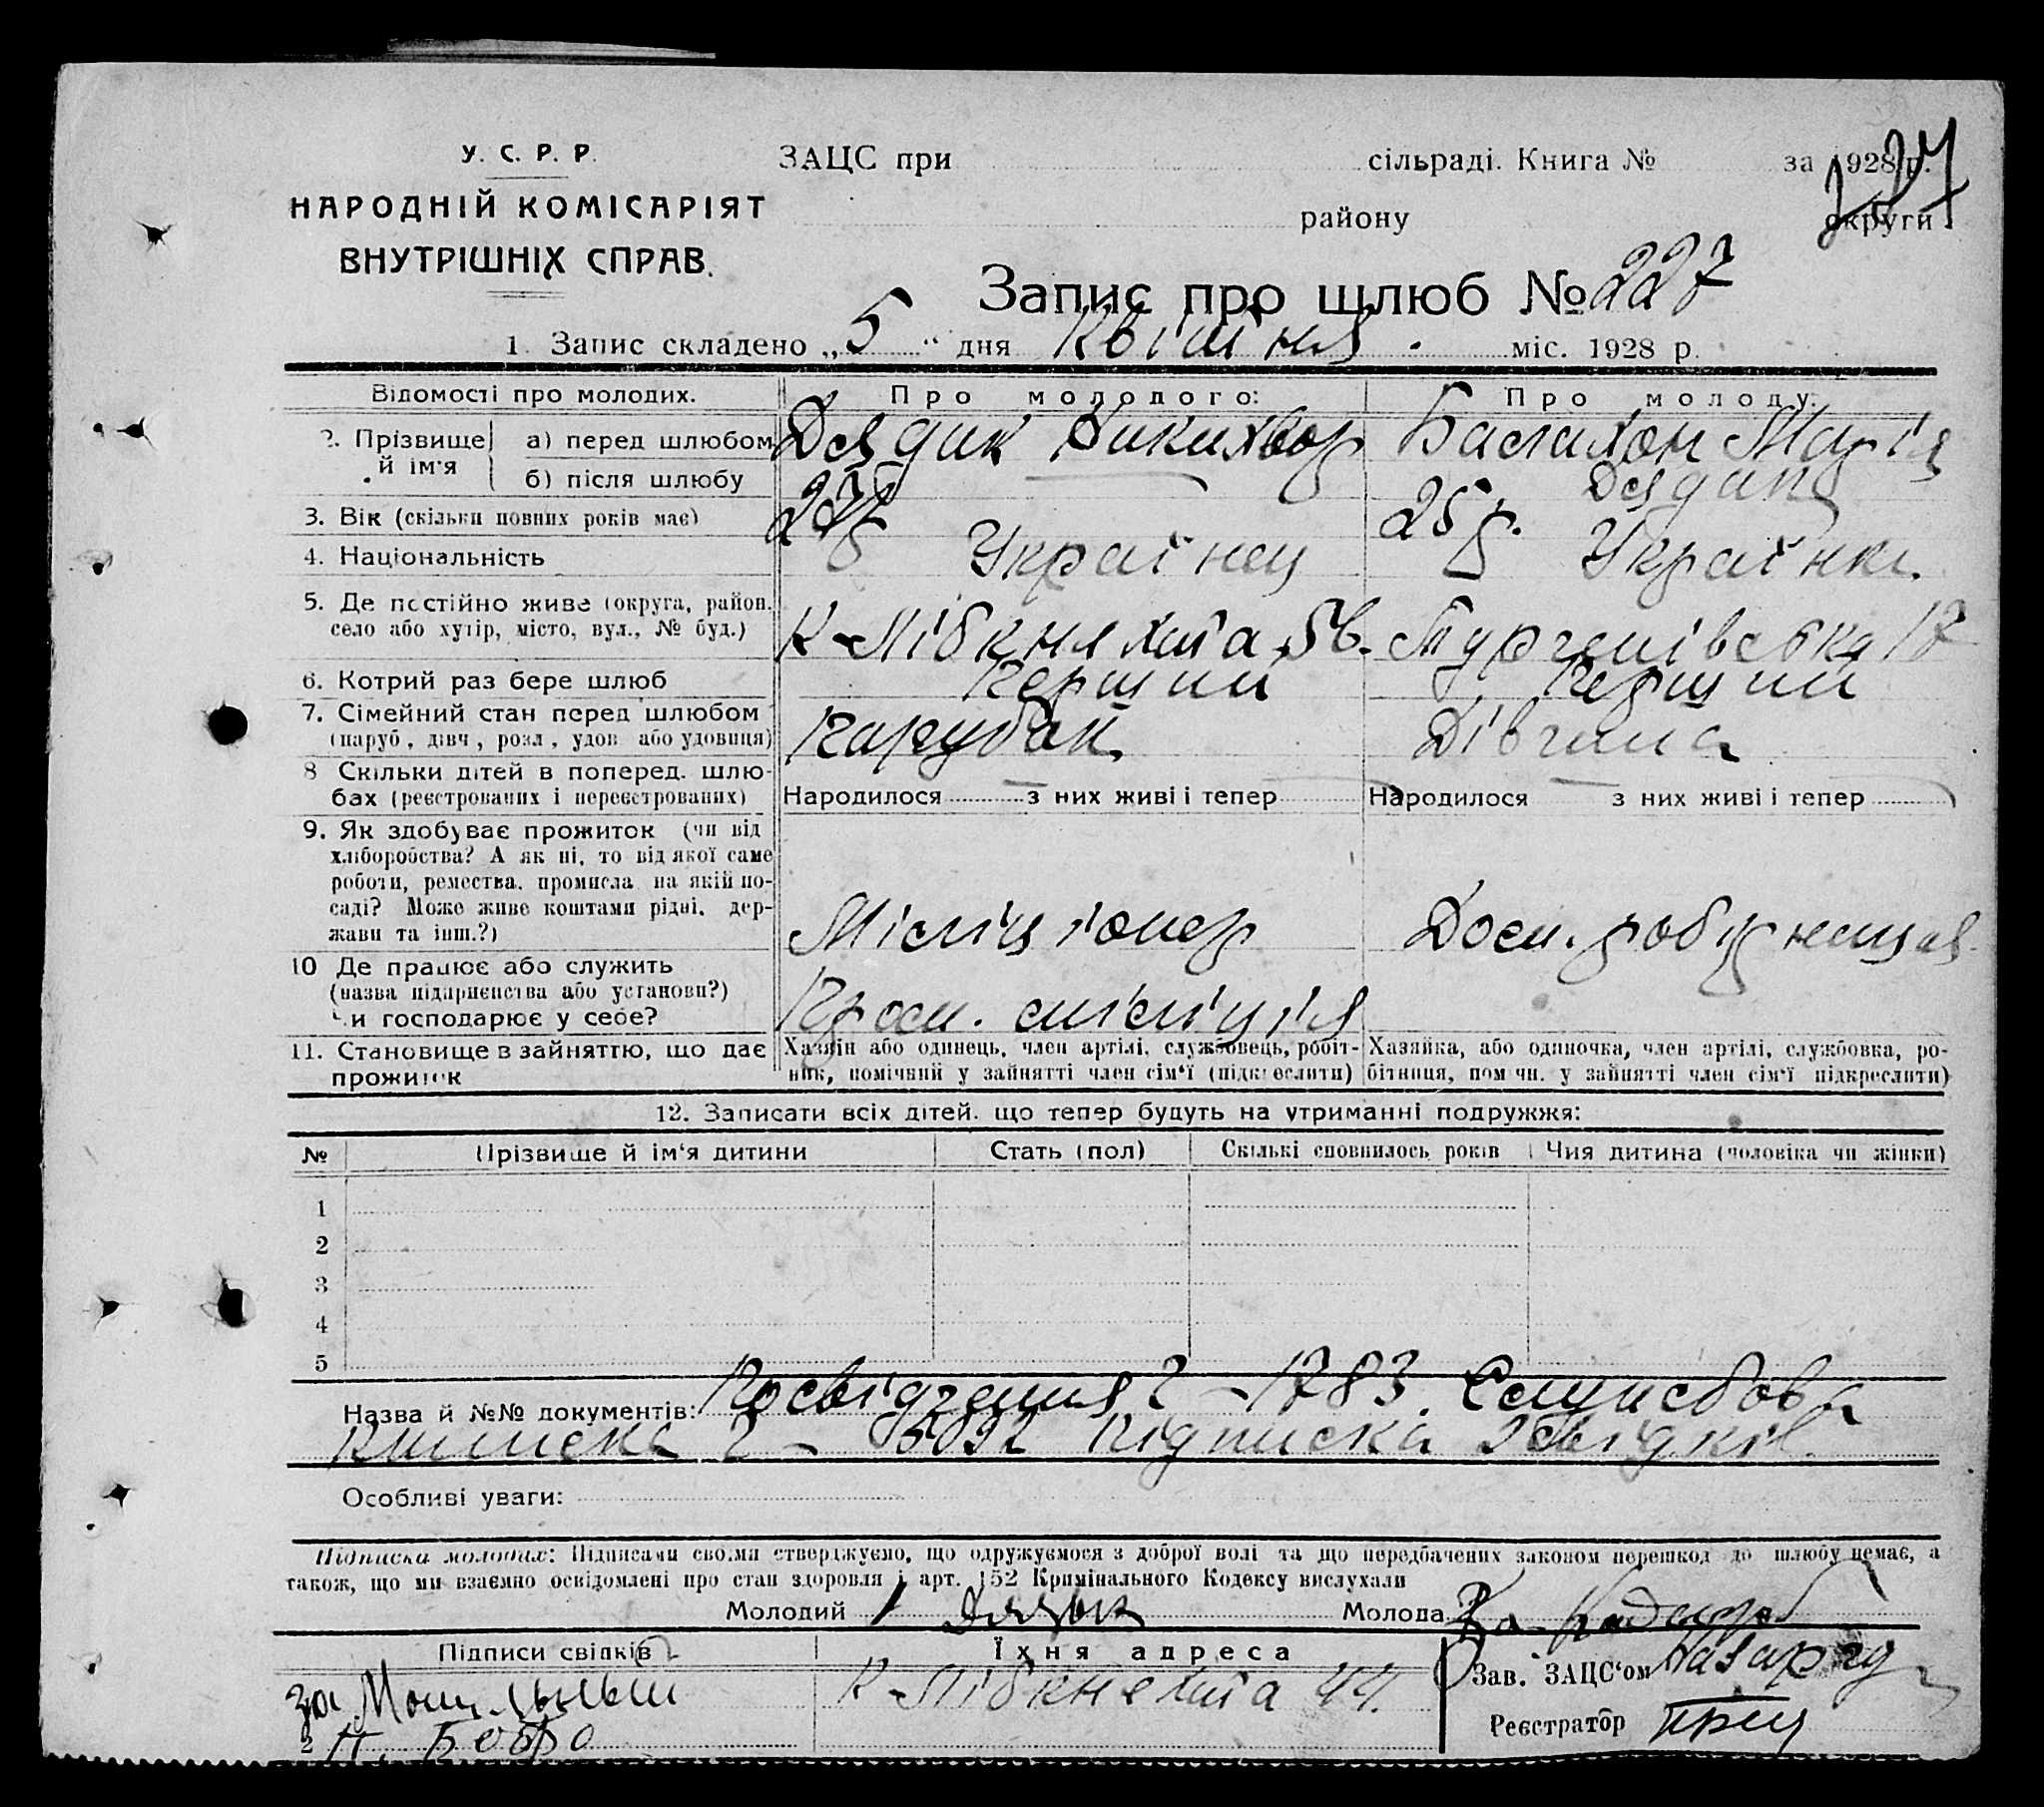 У. С. Р. Р.
НАРОДНІЙ КОМІСАРІЯТ
ВНУТРІШНІХ СПРАВ.
ЗАЦС при сільраді. Книга № за 1928 р.
району округи
Запис про шлюб № 227
1. Запис складено „5“ дня Квітня міс. 1928 р.
Відомості про молодих. Про молодого: Про молоду:
2. Прізвище й ім'я
а) перед шлюбом Дядик Никихвор Марія
б) після шлюбу Дядик
3. Вік (скільки повних років має) 27 25 р.
4. Національність Українец Українка
5. Де постійно живе (округа, район, село або хутір, місто, вул., № буд.) К-Лібкнехта Тургенівська 17
6. Котрий раз бере шлюб Перший Перший
7. Сімейний стан перед шлюбом (паруб., дівч., розл., удов. або удовиця) Парубак Дівчина
8 Скільки дітей в поперед. шлюбах (реєстрованих і нереєстрованих) Народилося з них живі і тепер Народилося з них живі і тепер
9. Як здобуває прожиток (чи від
хліборобства? А як ні, то від якої саме
роботи, ремества, промисла на якій по-
саді? Може живе коштами рідні, дер-
жави та інш.?) Міліціонер Дом. робітниця
10 Де працює або служить
(назва підприємства або установи?)
Чи господарює у себе? міліція
11. Становище в зайняттю, що дає прожиток
Хазяїн або одинець, член артілі, службовець, робіт-
ник, помічний у зайнятті член сім'ї (підкреслити)
Хазяйка, або одиночка, член артілі, службовка, ро-
бітниця, помічн. у зайнятті член сім'ї підкреслити)
12. Записати всіх дітей, що тепер будуть на утриманні подружжя:
№ Прізвище й ім'я дитини Стать (пол) Скількі сповнилось років Чия дитина (чоловіка чи жінки)
1
2
3
4
5
Назва й №№ документів: Посвідчення 2 - 1783.
Виписка Підписка Свідків.
Особливі уваги:
Підписка молодих: Підписами своїми стверджуємо, що одружуємося з доброї волі та що передбачених законом перешкод до шлюбу немає, а
також, що ми взаємно освідомлені про стан здоровля і арт. 152 Кримінального Кодексу вислухали
Молодий Дядык Молода За
Підписи свідків Їхня адреса
За К-Лібкнехта 44. Зав. ЗАЦС'ом
2 Реєстратор